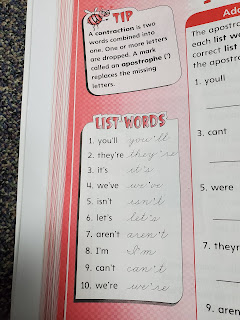 TIP
A contraction is two
words combined into
one. One or more letters
are dropped. A mark
called an apostrophe (')
replaces the missing
letters.
LIST WORDS
1. you'll you'll
2. they're they're
3. it's it's
4. we've we've
5. isn't isn't
6. let's let's
7. aren't aren't
8. I'm I'm
9. can't can't
10. we're we're
The apostro
each list wo
correct list
the apostro
1. youll
3. cant
5. were
7. theyr
9. aren